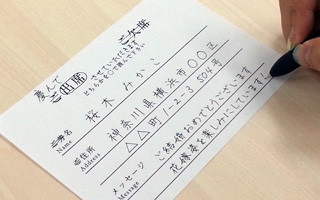 慶んで
ご出席 させていただきます
ご欠席
どちらかを○で囲んで下さい
ご芳名
Name
桜木みかこ
ご住所
Address
神奈川県横浜市○○区
△△町1-2-3 504号
メッセージ
Message
ご結婚おめでとうございます
花嫁姿を楽しみにしています！